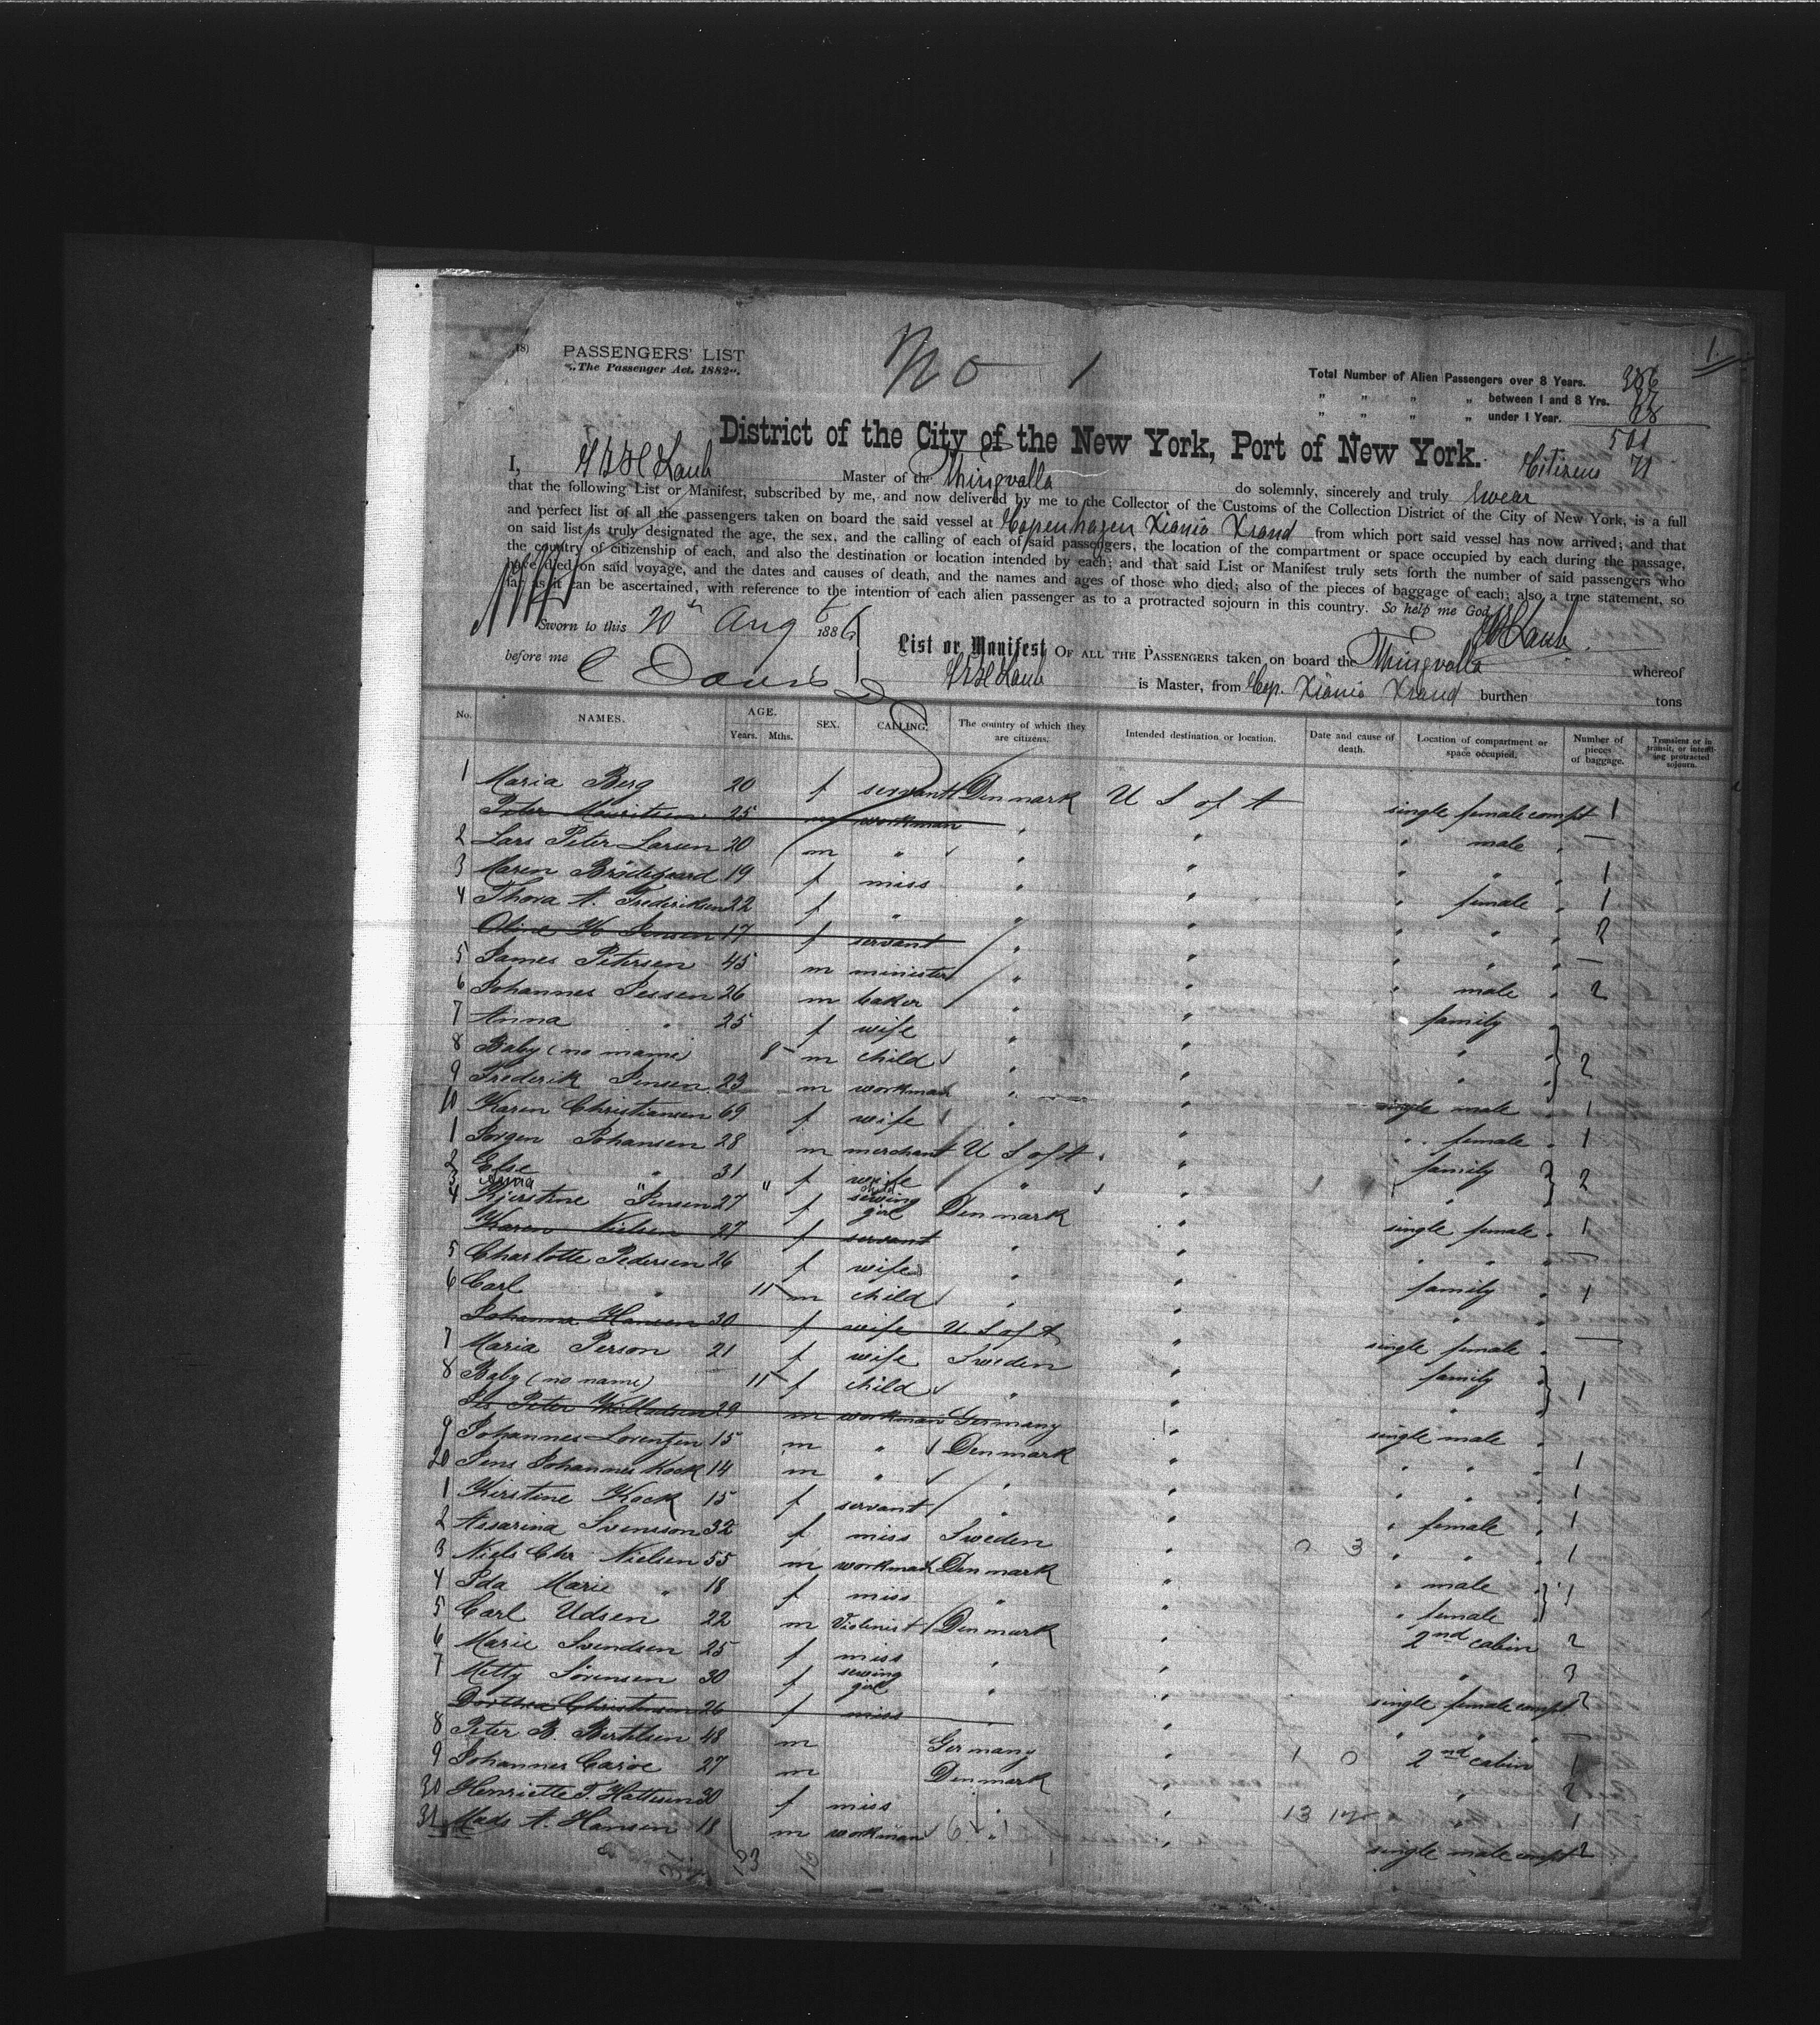 1.
(8)
PASSENGERS' LIST
"The Passenger Act, 1882".
No 1
Total Number of Alien Passengers over 8 Years. 386
" " " " between 1 and 8 Yrs.
" " " " under 1 Year. 28
501
District of the City of the New York, Port of New York. Citizens 71
I, Laub Master of the Thingvalla do solemnly, sincerely and truly swear
that the following List or Manifest, subscribed by me, and now delivered by me to the Collector of the Customs of the Collection District of the City of New York, is a full
and perfect list of all the passengers taken on board the said vessel at Copenhagen Xiania Xsand from which port said vessel has now arrived; and that
on said list is truly designated the age, the sex, and the calling of each of said passengers, the location of the compartment or space occupied by each during the passage,
the country of citizenship of each, and also the destination or location intended by each; and that said List or Manifest truly sets forth the number of said passengers who
have died on said voyage, and the dates and causes of death, and the names and ages of those who died; also of the pieces of baggage of each; also a true statement, so
far as it can be ascertained, with reference to the intention of each alien passenger as to a protracted sojourn in this country. So help me God. Laub
Sworn to this 20th Aug 1886
before me C Davis
List or Manifest OF ALL THE PASSENGERS taken on board the Thingvalla whereof
Laub is Master, from Cop. Xiania Xsand burthen tons
No. NAMES. AGE. Years. Mths. SEX. CALLING. The country of which they are citizens. Intended destination or location. Date and cause of death. Location of compartment or space occupied. Number of pieces of baggage. Transient or in transit, or intending protracted sojourn.
1 Maria Berg 20 f servant Denmark U S of A single female compt 1
Peter Mouritsen 25 m workman " " " male " —
2 Lars Peter Larsen 20 m " " " " " " 1
3 Maren Brödegaard 19 f miss " " " female " 1
4 Thora A. Frederiksen 22 f " " " " " " 2
Oline K Jensen 17 f servant " " " " " —
5 James Petersen 45 m minister " " " male " 2
6 Johannes Jessen 26 m baker " " family
7 Anna " 25 f wife " " " " 2
8 Baby (no name) 8 m child " " " "
9 Frederik Jensen 23 m workman " " single male " 1
10 Karen Christiansen 69 f wife " " " female " 1
1 Jorgen Johansen 28 m merchant U S of A " family 2
2 Else " 31 f wife " " "
3 Anna " " child
4 Kjerstine Jensen 27 f sewing girl Denmark " single female " 1
Karen Nielsen 27 f servant " " " " " —
5 Charlotte Pedersen 26 f wife " " family " 1
6 Carl " 11 m child " " " "
Johanna Hansen 30 f wife U S of A " single female " —
7 Maria Person 21 f wife Sweden " family " 1
8 Baby (no name) 11 f child " " " "
Peter 29 m workman Germany " single male "
9 Johannes Lorenzen 15 m " Denmark " " " " 1
20 Jens Johannes Kock 14 m " " " " " " 1
1 Kirstine Kock 15 f servant " " " female " 1
2 Assarina Svensson 32 f miss Sweden " 0 3 " " " 1
3 Niels Chr Nielsen 55 m workman Denmark " " male " 1
4 Ida Marie " 18 f miss " " " female "
5 Carl Udsen 22 m Violinist Denmark " 2nd cabin 2
6 Marie Svendsen 25 f miss " " " 3
7 Metty Sörensen 30 f sewing girl " " single female compt 2
Dorthea Christensen 26 f miss " " " " " —
8 Peter B. Bertelsen 48 m Germany " 1 0 2nd cabin 1
9 Johannes Caröe 27 m Denmark " " 2
30 Henriette F. Hattesen 30 f miss " " 13 12 " 1
31 Mads A. Hansen 18 m workman 6 " " single male compt 2
31 23 15